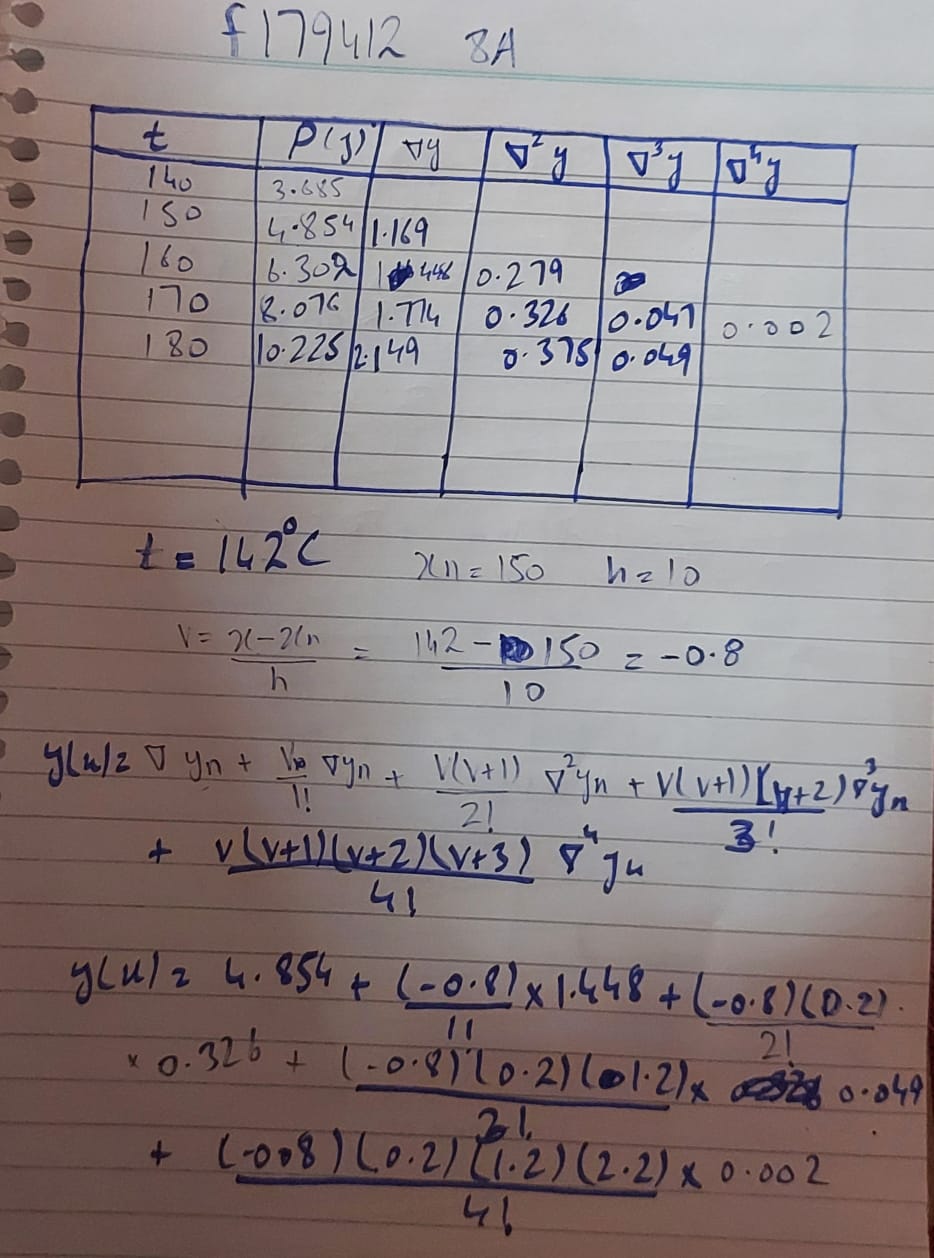 f179412 8A
t P(y) ∇y ∇²y ∇³y ∇⁴y
140 3.685
150 4.854 1.169
160 6.302 1.448 0.279
170 8.076 1.774 0.326 0.047 0.002
180 10.225 2.149 0.375 0.049
t = 142°C xn = 150 h = 10
V = x - xn / h = 142 - 150 / 10 = -0.8
y(x) = ∇ yn + V / 1! ∇yn + V(V+1) / 2! ∇²yn + V(V+1)(V+2) / 3! ∇³yn
+ V(V+1)(V+2)(V+3) / 4! ∇⁴yn
y(x) = 4.854 + (-0.8) / 1! × 1.448 + (-0.8)(0.2) / 2!
× 0.326 + (-0.8)(0.2)(1.2) / 3! × 0.049
+ (-008)(0.2)(1.2)(2.2) / 4! × 0.002